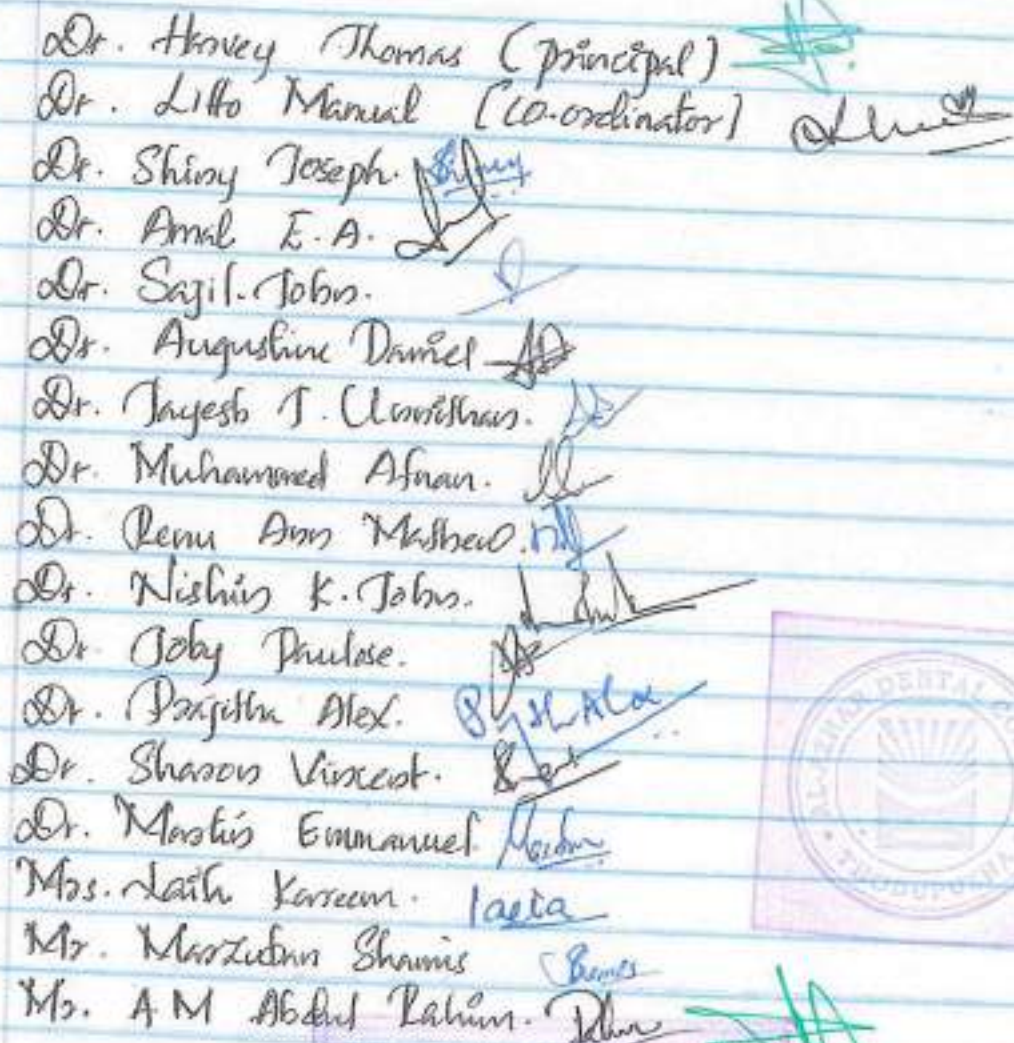 Dr. Harvey Thomas (principal)
Dr. Litto Manual [co-ordinator]
Dr. Shiny Joseph. Shiny
Dr. Amal E.A.
Dr. Sajil. John.
Dr. Augustine Daniel
Dr. Jayesh T. Unnithan.
Dr. Muhammed Afnan.
Dr. Renu Ann Mathew.
Dr. Nishin K. John.
Dr. Joby Paulose.
Dr. Prajitha Alex.
Dr. Sharon Vincent.
Dr. Martin Emmanuel. Martin
Mrs. Kareem. laeta
Mr. Marzuban Shamis
Mr. A M Abdul Rahim.
AL-AZHAR DENTAL
THODUPUZHA